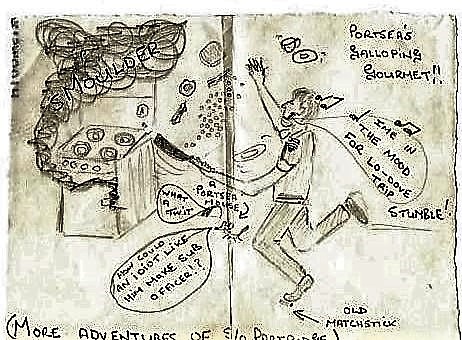 PORTSEA'S
GALLOPING
GOURMET!!
MOULDER
I'ME IN
THE MOOD
FOR LO-OOVE
TRIP
STUMBLE!
WHAT
A
TWIT
A
PORTSEA
MOUSE
HOW COULD
AN IDIOT LIKE
HIM MAKE SUB
OFFICER!?
OLD
MATCHSTICK
(MORE ADVENTURES OF S/O PARTRIDGE)